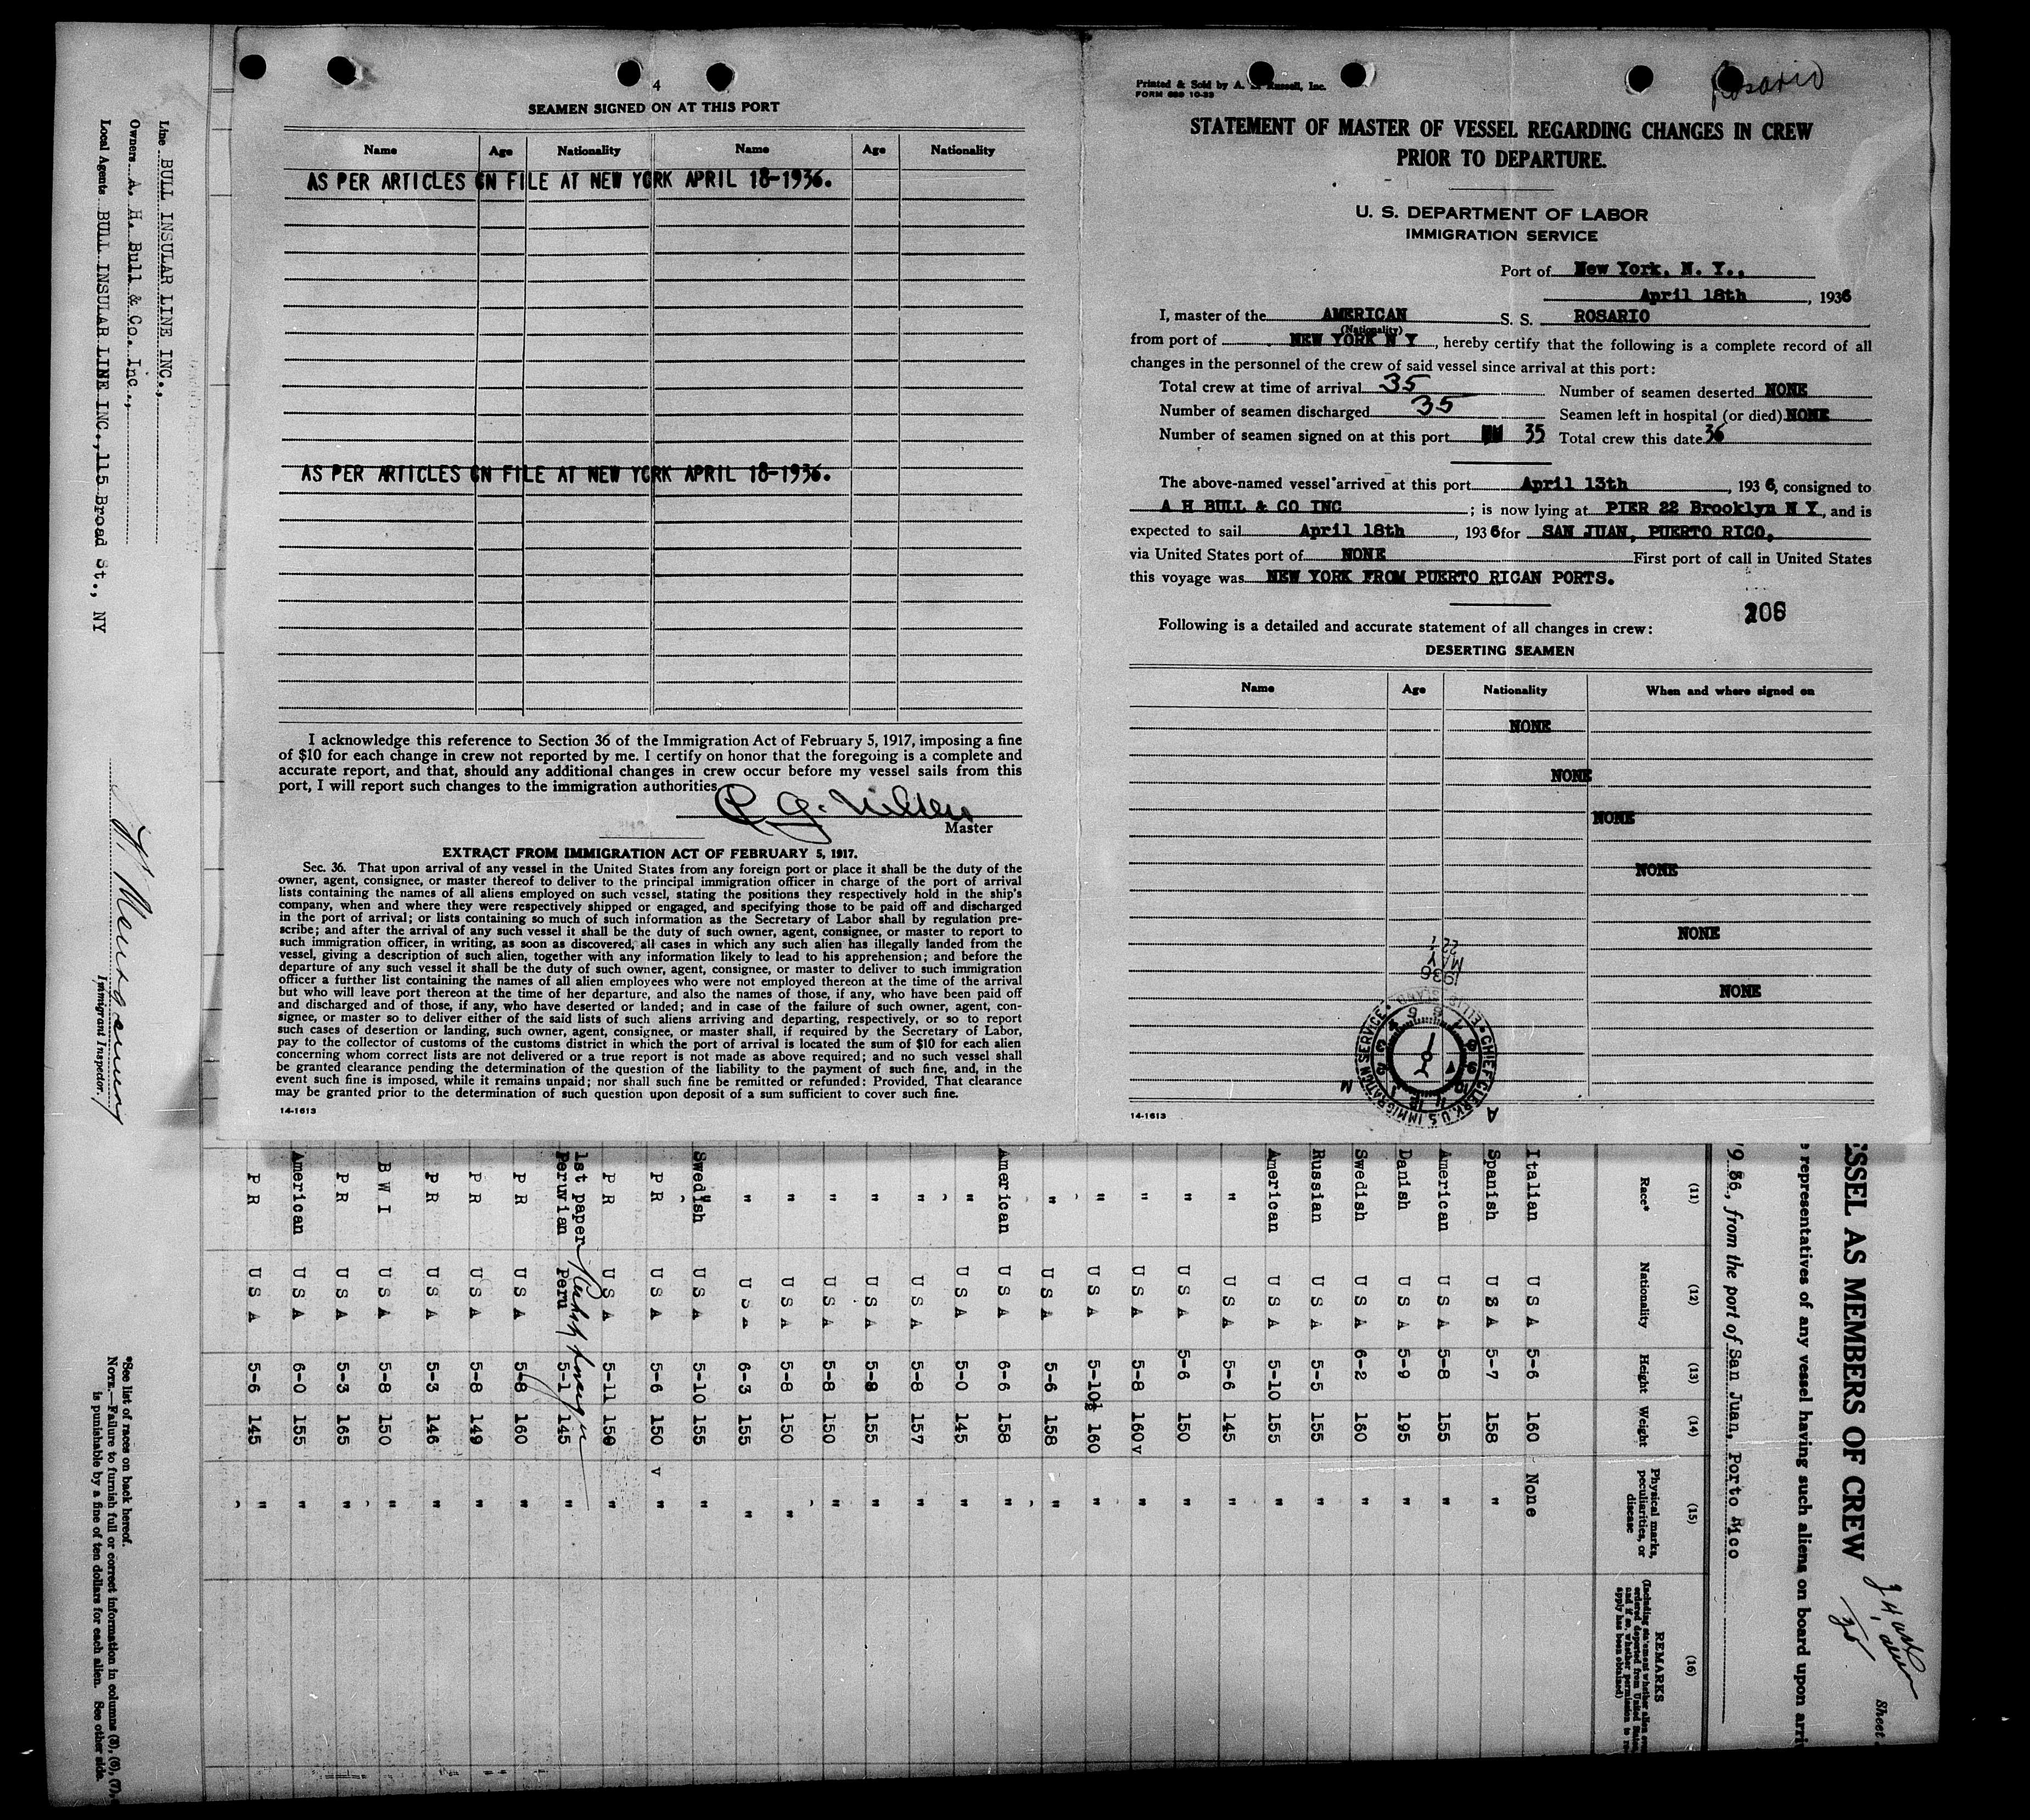 4
SEAMEN SIGNED ON AT THIS PORT
Name Age Nationality Name Age Nationality
AS PER ARTICLES ON FILE AT NEW YORK APRIL 18-1936.
AS PER ARTICLES ON FILE AT NEW YORK APRIL 18-1936.
I acknowledge this reference to Section 36 of the Immigration Act of February 5, 1917, imposing a fine
of $10 for each change in crew not reported by me. I certify on honor that the foregoing is a complete and
accurate report, and that, should any additional changes in crew occur before my vessel sails from this
port, I will report such changes to the immigration authorities.
Master
EXTRACT FROM IMMIGRATION ACT OF FEBRUARY 5, 1917.
Sec. 36. That upon arrival of any vessel in the United States from any foreign port or place it shall be the duty of the
owner, agent, consignee, or master thereof to deliver to the principal immigration officer in charge of the port of arrival
lists containing the names of all aliens employed on such vessel, stating the positions they respectively hold in the ship's
company, when and where they were respectively shipped or engaged, and specifying those to be paid off and discharged
in the port of arrival; or lists containing so much of such information as the Secretary of Labor shall by regulation pre-
scribe; and after the arrival of any such vessel it shall be the duty of such owner, agent, consignee, or master to report to
such immigration officer, in writing, as soon as discovered, all cases in which any such alien has illegally landed from the
vessel, giving a description of such alien, together with any information likely to lead to his apprehension; and before the
departure of any such vessel it shall be the duty of such owner, agent, consignee, or master to deliver to such immigration
officer a further list containing the names of all alien employees who were not employed thereon at the time of the arrival
but who will leave port thereon at the time of her departure, and also the names of those, if any, who have been paid off
and discharged and of those, if any, who have deserted or landed; and in case of the failure of such owner, agent, con-
signee, or master so to deliver either of the said lists of such aliens arriving and departing, respectively, or so to report
such cases of desertion or landing, such owner, agent, consignee, or master shall, if required by the Secretary of Labor,
pay to the collector of customs of the customs district in which the port of arrival is located the sum of $10 for each alien
concerning whom correct lists are not delivered or a true report is not made as above required; and no such vessel shall
be granted clearance pending the determination of the question of the liability to the payment of such fine, and, in the
event such fine is imposed, while it remains unpaid; nor shall such fine be remitted or refunded: Provided, That clearance
may be granted prior to the determination of such question upon deposit of a sum sufficient to cover such fine.
14-1613
Printed & Sold by A. Russell, Inc.
FORM 689 10-33
Rosario
STATEMENT OF MASTER OF VESSEL REGARDING CHANGES IN CREW
PRIOR TO DEPARTURE.
U. S. DEPARTMENT OF LABOR
IMMIGRATION SERVICE
Port of New York, N. Y.,
April 18th, 1936
I, master of the AMERICAN S. S. ROSARIO
(Nationality)
from port of NEW YORK N Y, hereby certify that the following is a complete record of all
changes in the personnel of the crew of said vessel since arrival at this port:
Total crew at time of arrival 35 Number of seamen deserted NONE
Number of seamen discharged 35 Seamen left in hospital (or died) NONE
Number of seamen signed on at this port 35 Total crew this date 36
The above-named vessel arrived at this port April 13th, 1936, consigned to
A H BULL & CO INC; is now lying at PIER 22 Brooklyn N Y, and is
expected to sail April 18th, 1936 for SAN JUAN, PUERTO RICO,
via United States port of NONE First port of call in United States
this voyage was NEW YORK FROM PUERTO RICAN PORTS.
206
Following is a detailed and accurate statement of all changes in crew:
DESERTING SEAMEN
Name Age Nationality When and where signed on
NONE
NONE
NONE
NONE
NONE
NONE
1936
MAY
22
CHIEF CLERK, U.S. IMMIGRATION SERVICE ELLIS ISLAND
A M
14-1613
Line BULL INSULAR LINE INC.,
Owners A. H. Bull & Co. Inc.,
Local Agents BULL INSULAR LINE INC., 115 Broad St., NY
Immigrant Inspector.
SSEL AS MEMBERS OF CREW
Sheet
representatives of any vessel having such aliens on board upon arri
1936, from the port of San Juan, Porto Rico
(11) (12) (13) (14) (15) (16)
Race* Nationality Height Weight Physical marks, peculiarities, or disease REMARKS
Italian U S A 5-6 160 None
Spanish U S A 5-7 158 "
American U S A 5-8 155 "
Danish U S A 5-9 195 "
Swedish U S A 6-2 160 "
Russian U S A 5-5 155 "
American U S A 5-10 155 "
" U S A 5-6 145 "
" U S A 5-6 150 "
" U S A 5-8 160 v "
" U S A 5-10½ 160 "
" U S A 5-6 158 "
American U S A 6-6 158 "
" U S A 5-0 145 "
" U S A 5-8 157 "
" U S A 5-8 155 "
" U S A 5-8 150 "
" U S A 5-8 150 "
" U S A 6-3 155 "
Swedish U S A 5-10 155 "
P R U S A 5-6 150 v "
P R U S A 5-11 150 "
1st paper
Peruvian Peru 5-1 145 "
P R U S A 5-8 160 "
P R U S A 5-8 149 "
P R U S A 5-3 146 "
B W I U S A 5-8 150 "
P R U S A 5-3 165 "
American U S A 6-0 155 "
P R U S A 5-6 145 "
*See list of races on back hereof.
NOTE.—Failure to furnish full or correct information in columns (5), (6), (7),
is punishable by a fine of ten dollars for each alien. See other side.